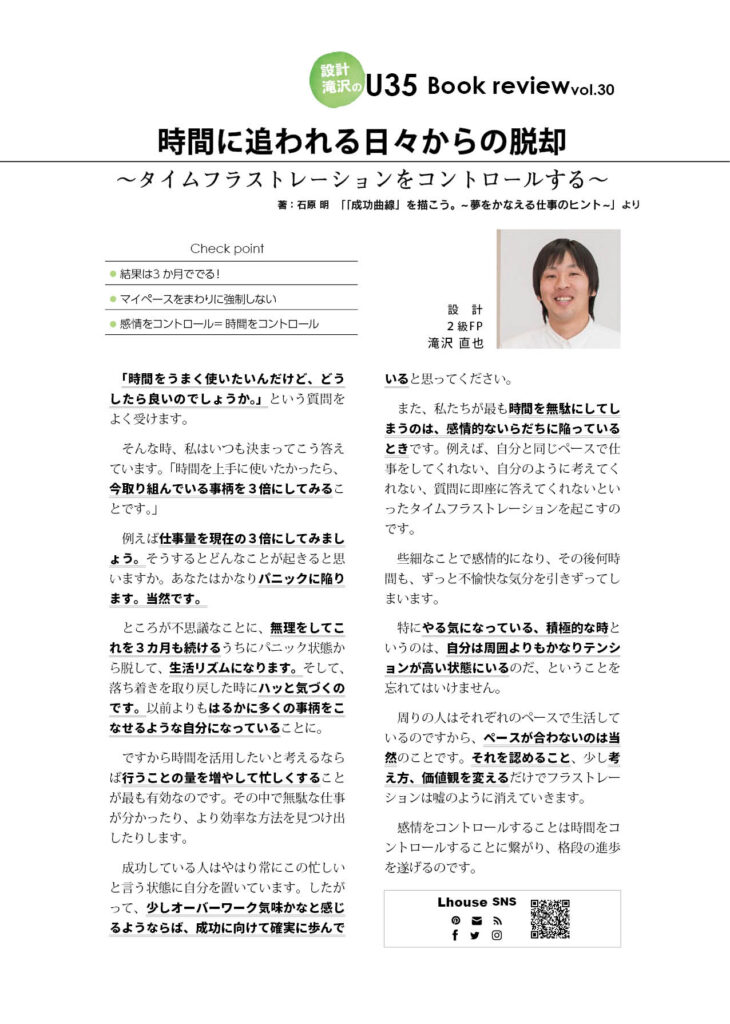 設計
滝沢の
U35 Book review vol.30
時間に追われる日々からの脱却
～タイムフラストレーションをコントロールする～
著：石原 明　「「成功曲線」を描こう。~夢をかなえる仕事のヒント~」より
Check point
● 結果は3か月ででる！
● マイペースをまわりに強制しない
● 感情をコントロール＝時間をコントロール
設　計
２級FP
滝沢 直也
「時間をうまく使いたいんだけど、どう
したら良いのでしょうか。」という質問を
よく受けます。
そんな時、私はいつも決まってこう答え
ています。「時間を上手に使いたかったら、
今取り組んでいる事柄を３倍にしてみるこ
とです。」
例えば仕事量を現在の３倍にしてみまし
ょう。そうするとどんなことが起きると思
いますか。あなたはかなりパニックに陥り
ます。当然です。
ところが不思議なことに、無理をしてこ
れを３カ月も続けるうちにパニック状態か
ら脱して、生活リズムになります。そして、
落ち着きを取り戻した時にハッと気づくの
です。以前よりもはるかに多くの事柄をこ
なせるような自分になっていることに。
ですから時間を活用したいと考えるなら
ば行うことの量を増やして忙しくすること
が最も有効なのです。その中で無駄な仕事
が分かったり、より効率な方法を見つけ出
したりします。
成功している人はやはり常にこの忙しい
と言う状態に自分を置いています。したが
って、少しオーバーワーク気味かなと感じ
るようならば、成功に向けて確実に歩んで
いると思ってください。
また、私たちが最も時間を無駄にしてし
まうのは、感情的ないらだちに陥っている
ときです。例えば、自分と同じペースで仕
事をしてくれない、自分のように考えてく
れない、質問に即座に答えてくれないとい
ったタイムフラストレーションを起こすの
です。
些細なことで感情的になり、その後何時
間も、ずっと不愉快な気分を引きずってし
まいます。
特にやる気になっている、積極的な時と
いうのは、自分は周囲よりもかなりテンシ
ョンが高い状態にいるのだ、ということを
忘れてはいけません。
周りの人はそれぞれのペースで生活して
いるのですから、ペースが合わないのは当
然のことです。それを認めること、少し考
え方、価値観を変えるだけでフラストレー
ションは嘘のように消えていきます。
感情をコントロールすることは時間をコ
ントロールすることに繋がり、格段の進歩
を遂げるのです。
Lhouse SNS